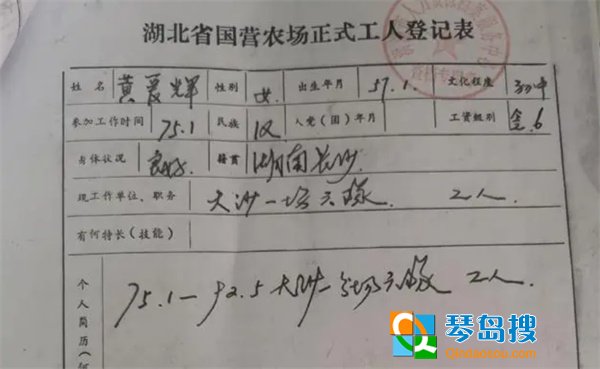 湖北省国营农场正式工人登记表
姓名 黄爱辉 性别 女 出生年月 57.1. 文化程度 初中
参加工作时间 75.1 民族 汉 入党(团)年月 工资级别 6
身体状况 良好 籍贯 湖南长沙
现工作单位、职务 大沙一场六队 工人
有何特长(技能)
个人简历(
75.1—92.5 大沙一分场六队 工人
琴岛搜
Qindaosou.com